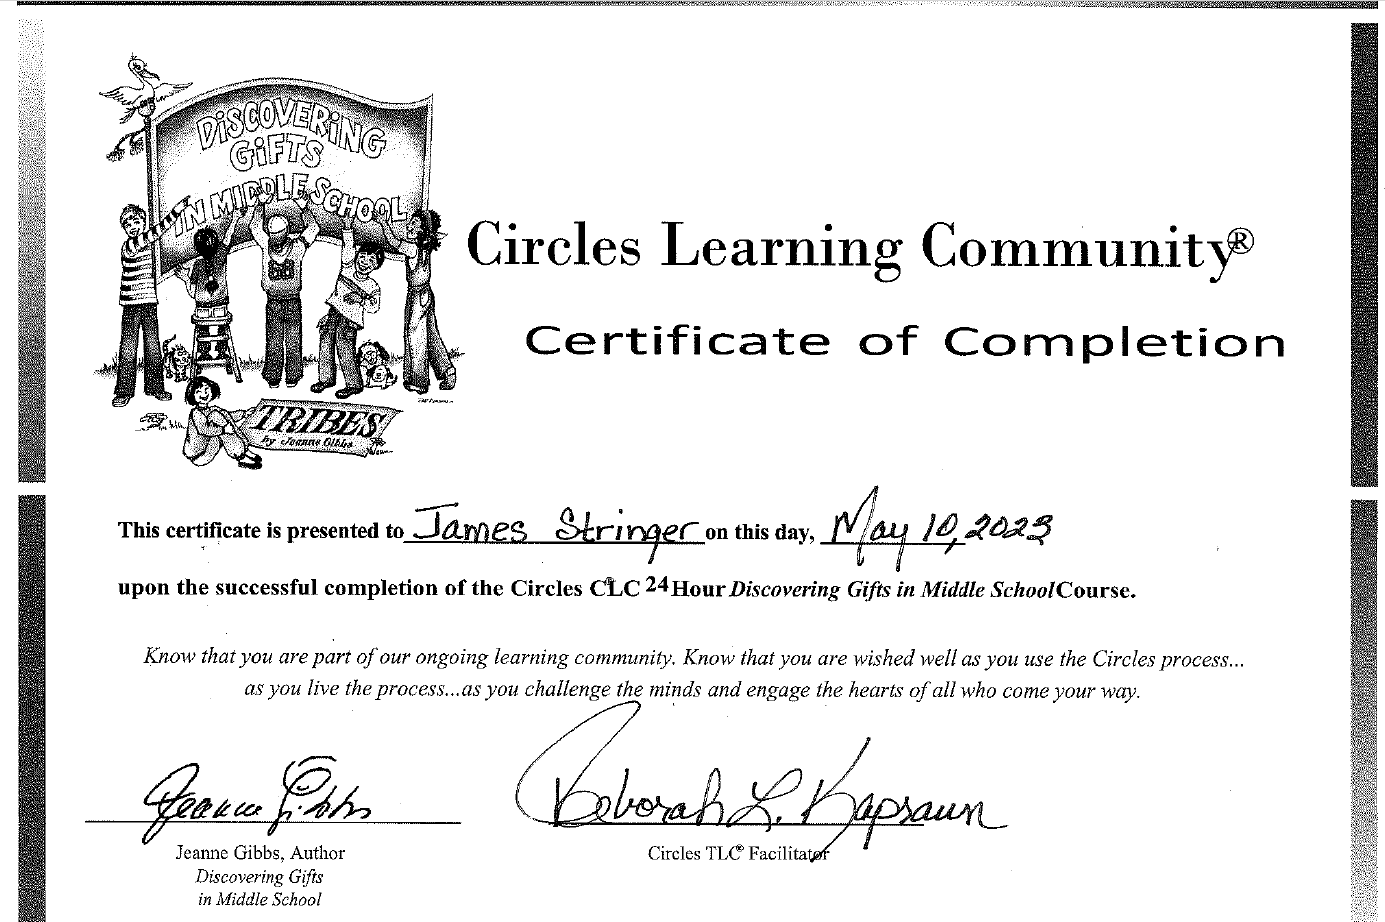 DISCOVERING
GIFTS
IN MIDDLE SCHOOL
68
TRIBES
by Jeanne Gibbs
Circles Learning Community®
Certificate of Completion
This certificate is presented to James Stringer on this day, May 10, 2023
upon the successful completion of the Circles CLC 24 Hour Discovering Gifts in Middle School Course.
Know that you are part of our ongoing learning community. Know that you are wished well as you use the Circles process...
as you live the process...as you challenge the minds and engage the hearts of all who come your way.
Jeanne Gibbs Deborah L. Kapsaun
Jeanne Gibbs, Author Circles TLC® Facilitator
Discovering Gifts
in Middle School